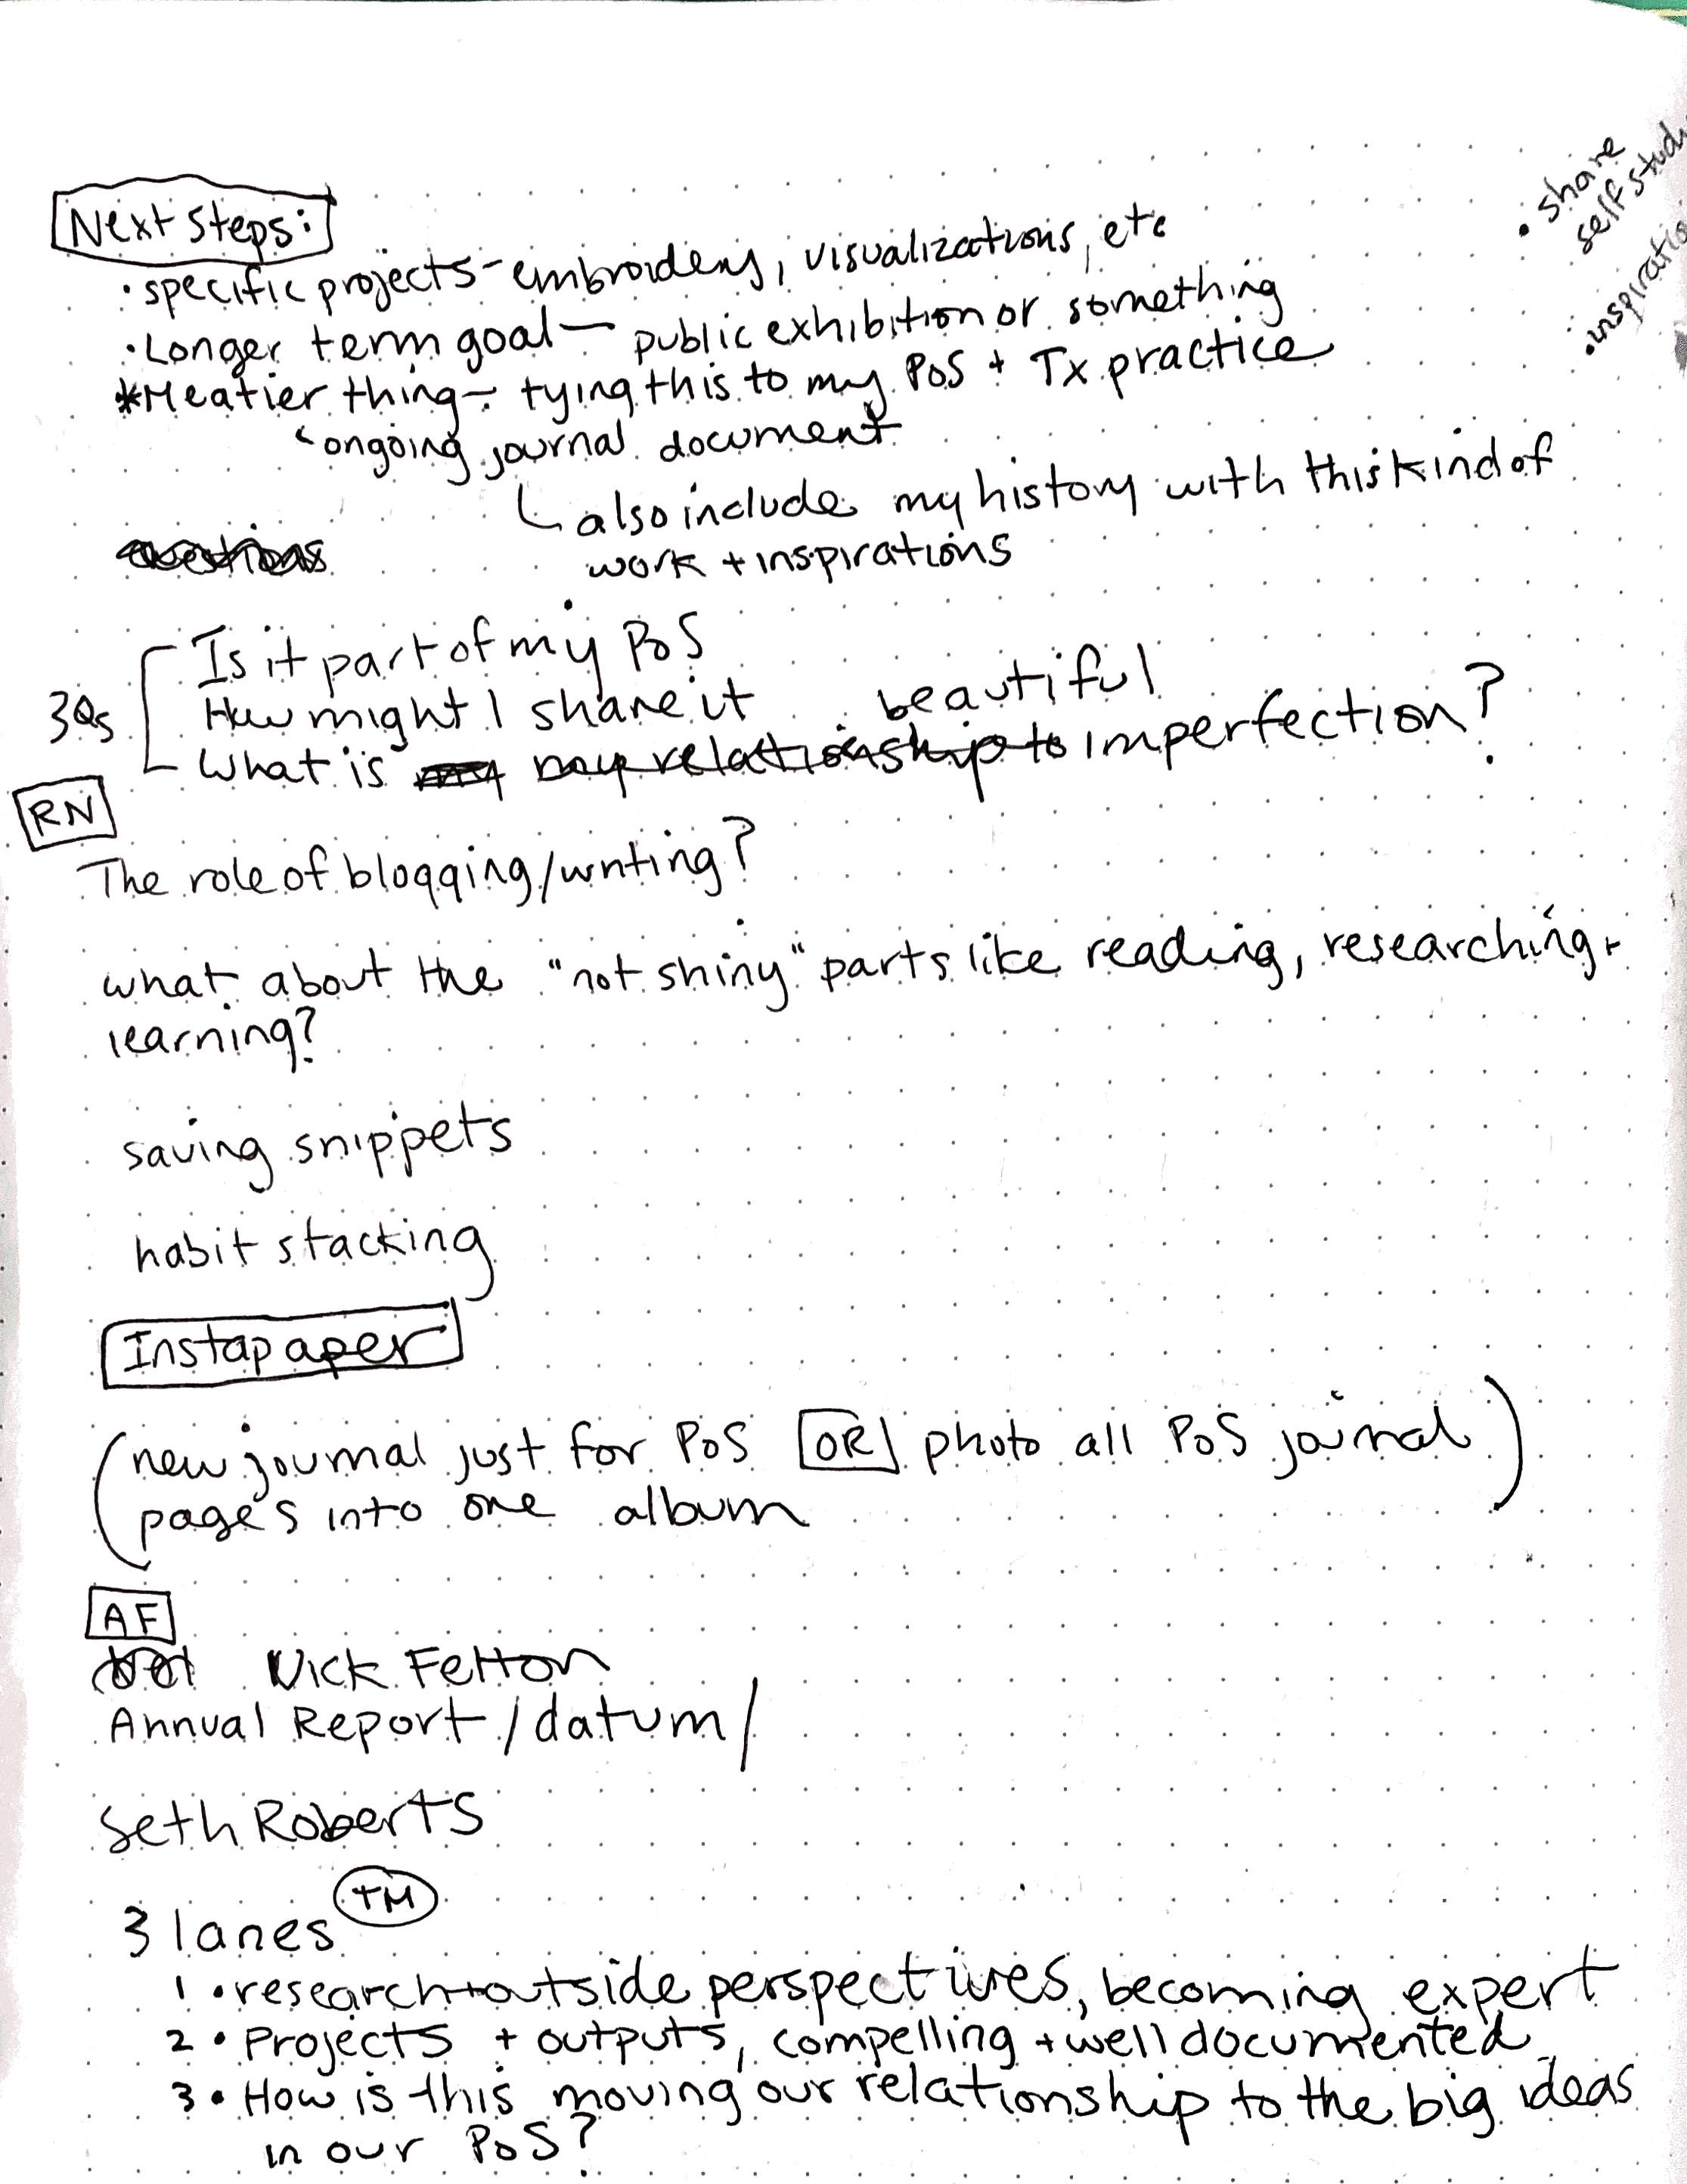 Next Steps:
• specific projects - embroidery, visualizations, etc
• Longer term goal — public exhibition or something
* Meatier thing - tying this to my PoS + Tx practice
ongoing journal document
also include my history with this kind of
work + inspirations
• share
self stud
• inspiratio
questions
3Qs
Is it part of my PoS
How might I share it
beautiful
What is my my relationship to imperfection?
RN
The role of blogging/writing?
what about the "not shiny" parts like reading, researching +
learning?
saving snippets
habit stacking
Instapaper
(new journal just for PoS OR photo all PoS journal)
pages into one album
AF
Nick Felton
Annual Report /datum/
Seth Roberts
3 lanes TM
1 • research + outside perspectives, becoming expert
2 • Projects + outputs, compelling + well documented
3 • How is this moving our relationship to the big ideas
in our PoS?